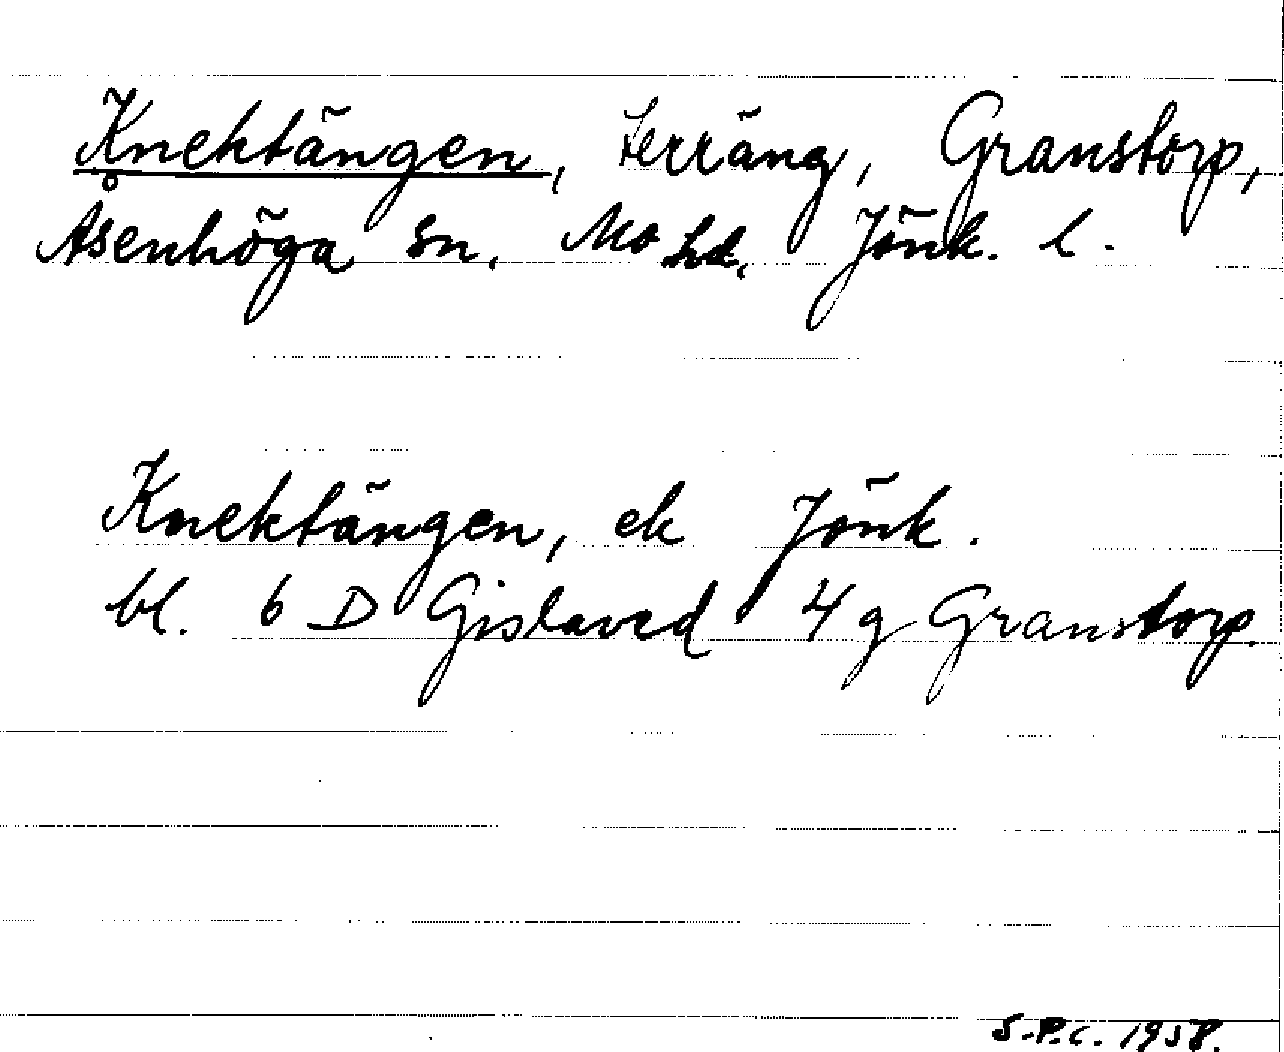 Knektängen, terräng, Granstorp,
Åsenhöga sn. Mo hd, Jönk. l.
Knektängen, ek Jönk.
bl. 6 D Gislaved 4 g Granstorp.
S.P.C. 1958.